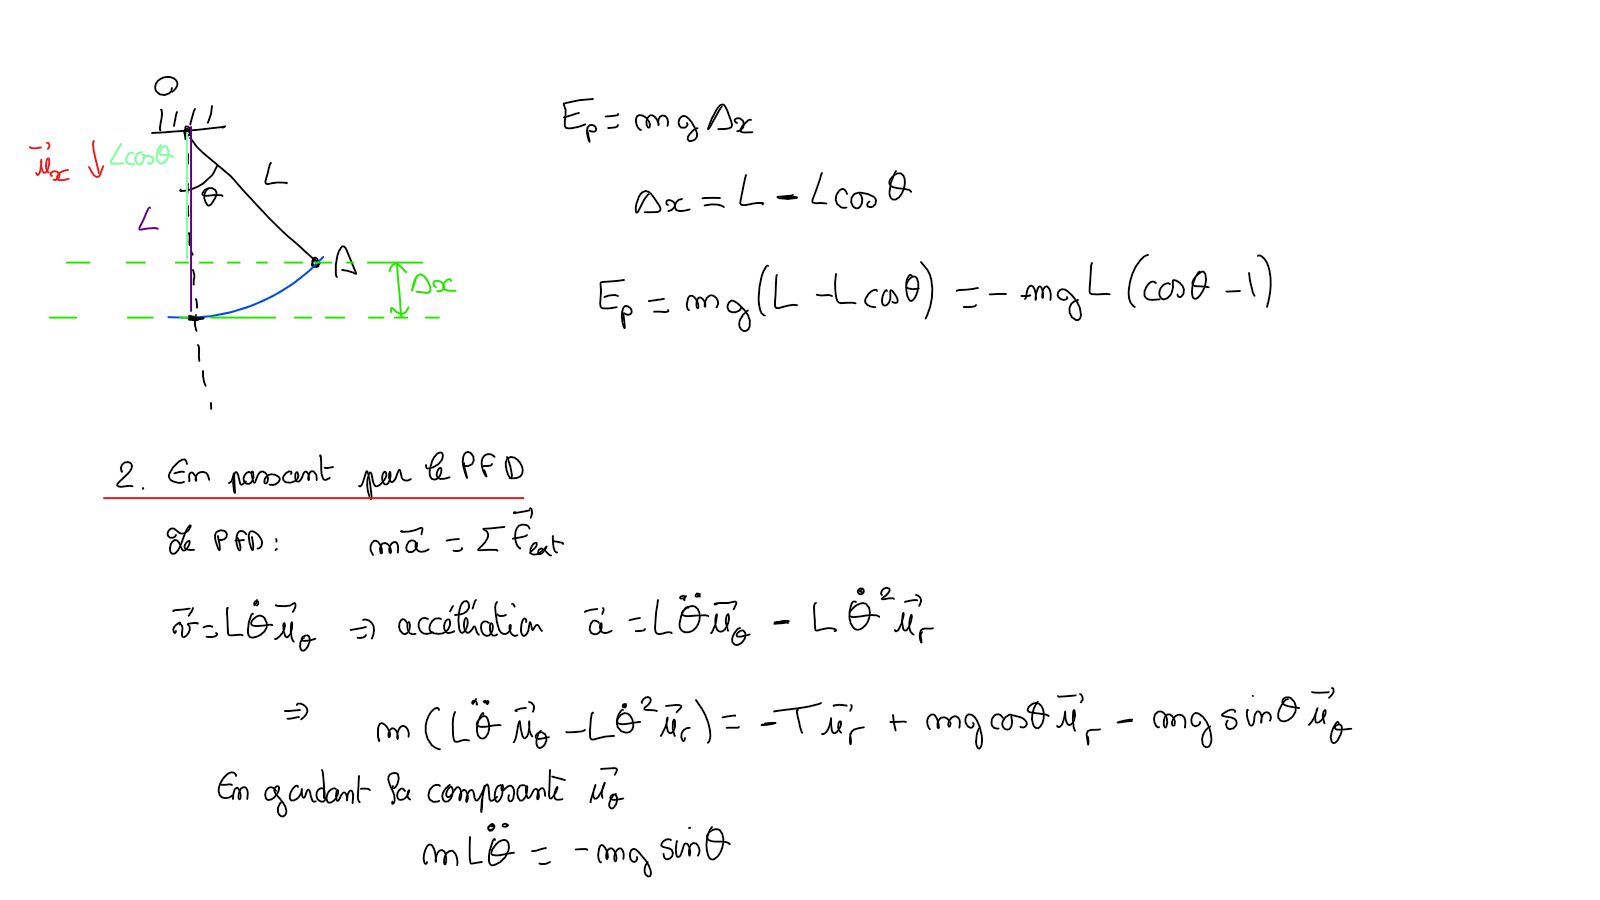 O
u⃗ₓ ↓ Lcosθ
θ
L
L
A
Δx
Eₚ = mgΔx
Δx = L - Lcosθ
Eₚ = mg(L - Lcosθ) = - mgL (cosθ - 1)
2. En passant par le PFD
Le PFD : ma⃗ = Σ F⃗ext
v⃗ = Lθ̇u⃗θ ⇒ accélération a⃗ = Lθ̈u⃗θ - Lθ̇²u⃗r
⇒ m(Lθ̈u⃗θ - Lθ̇²u⃗r) = -Tu⃗r + mgcosθu⃗r - mgsinθu⃗θ
En gardant la composante u⃗θ
mLθ̈ = -mgsinθ